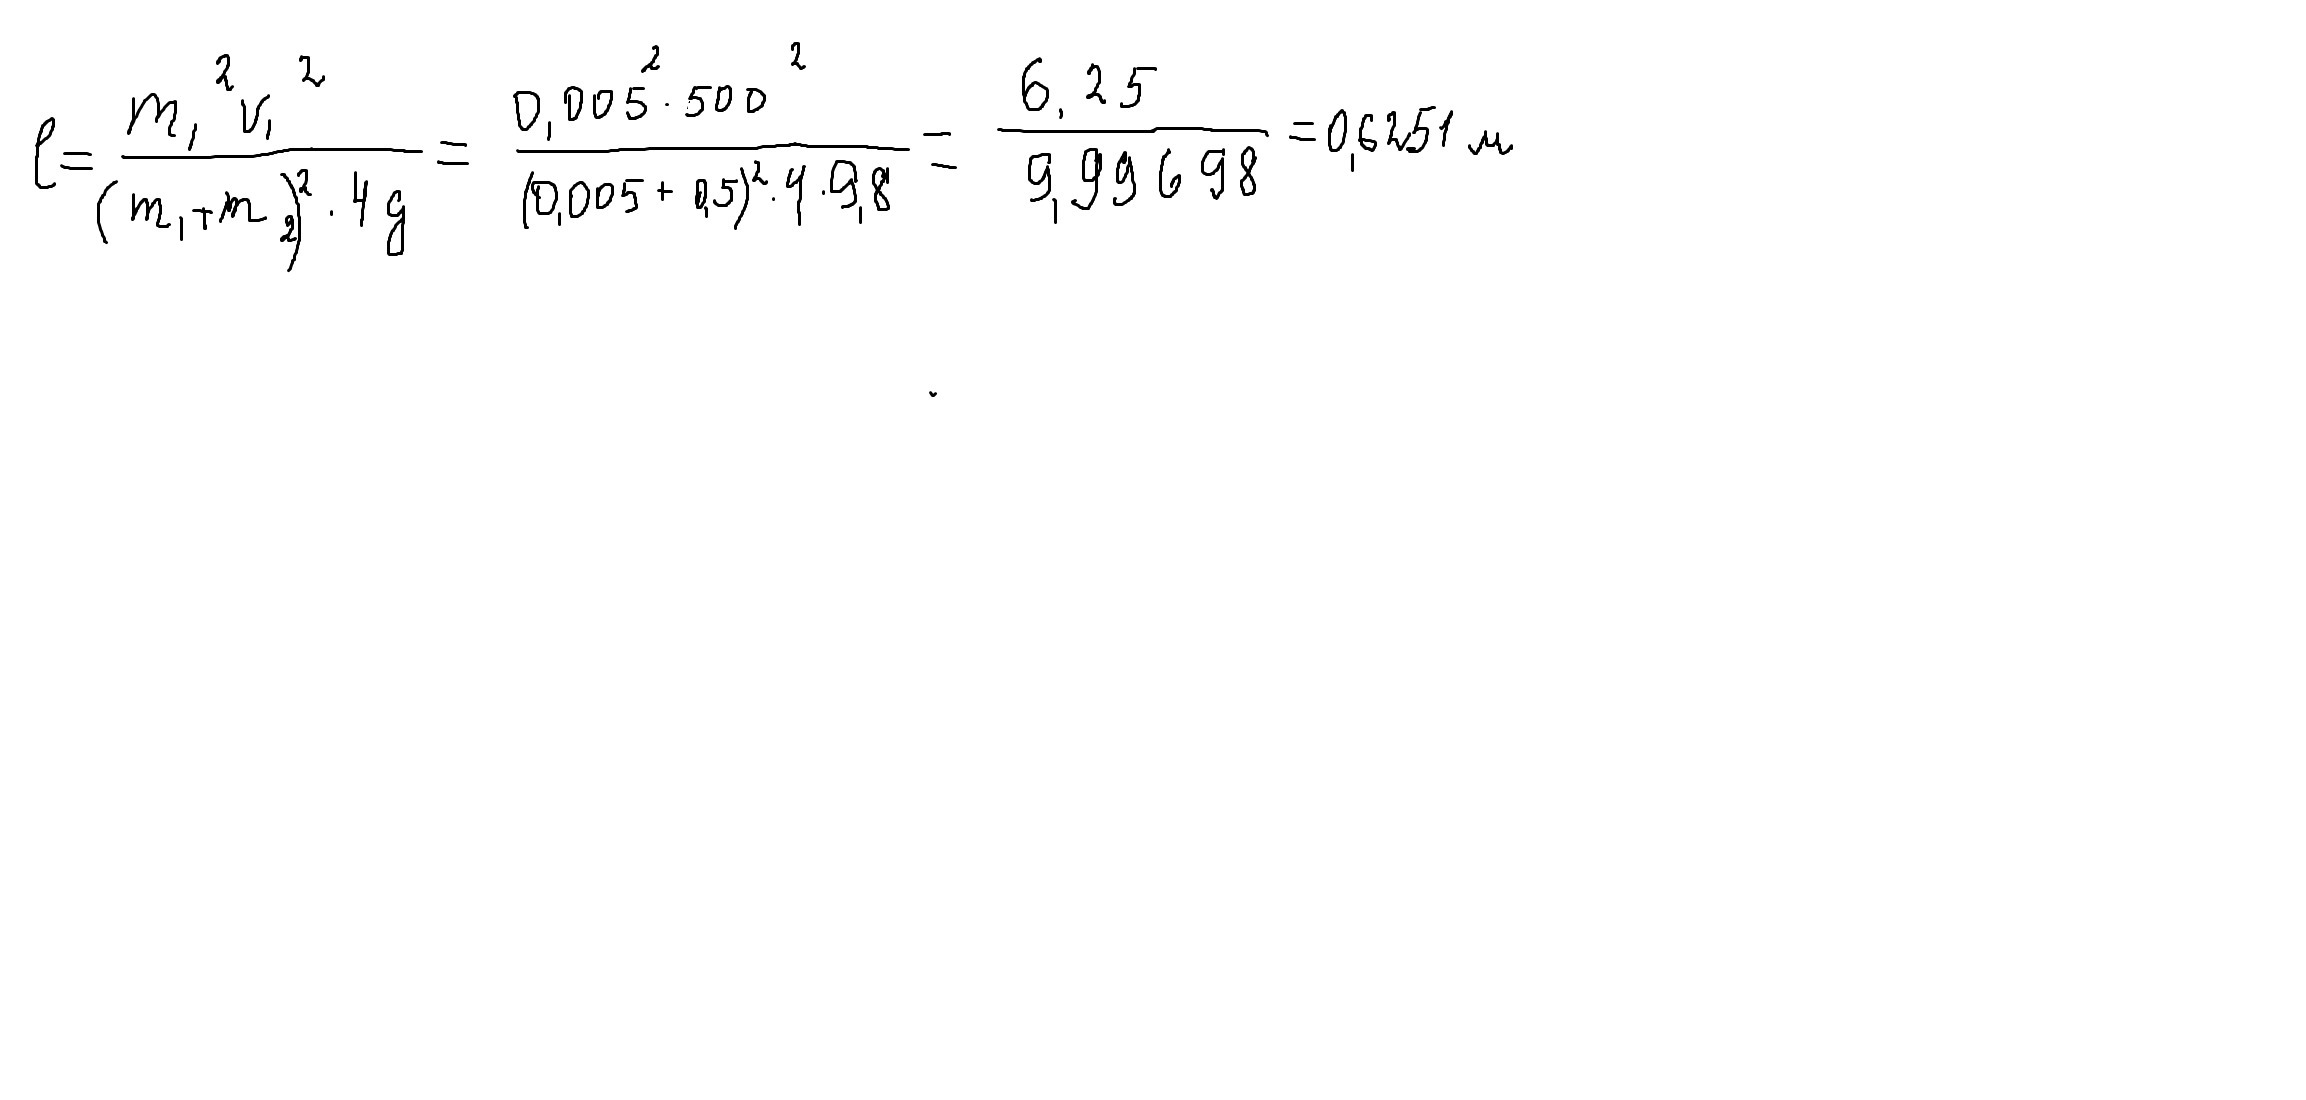 l = m₁²v₁² / (m₁+m₂)²·4g = 0,005²·500² / (0,005+0,5)²·4·9,8 = 6,25 / 9,99698 = 0,6251 м